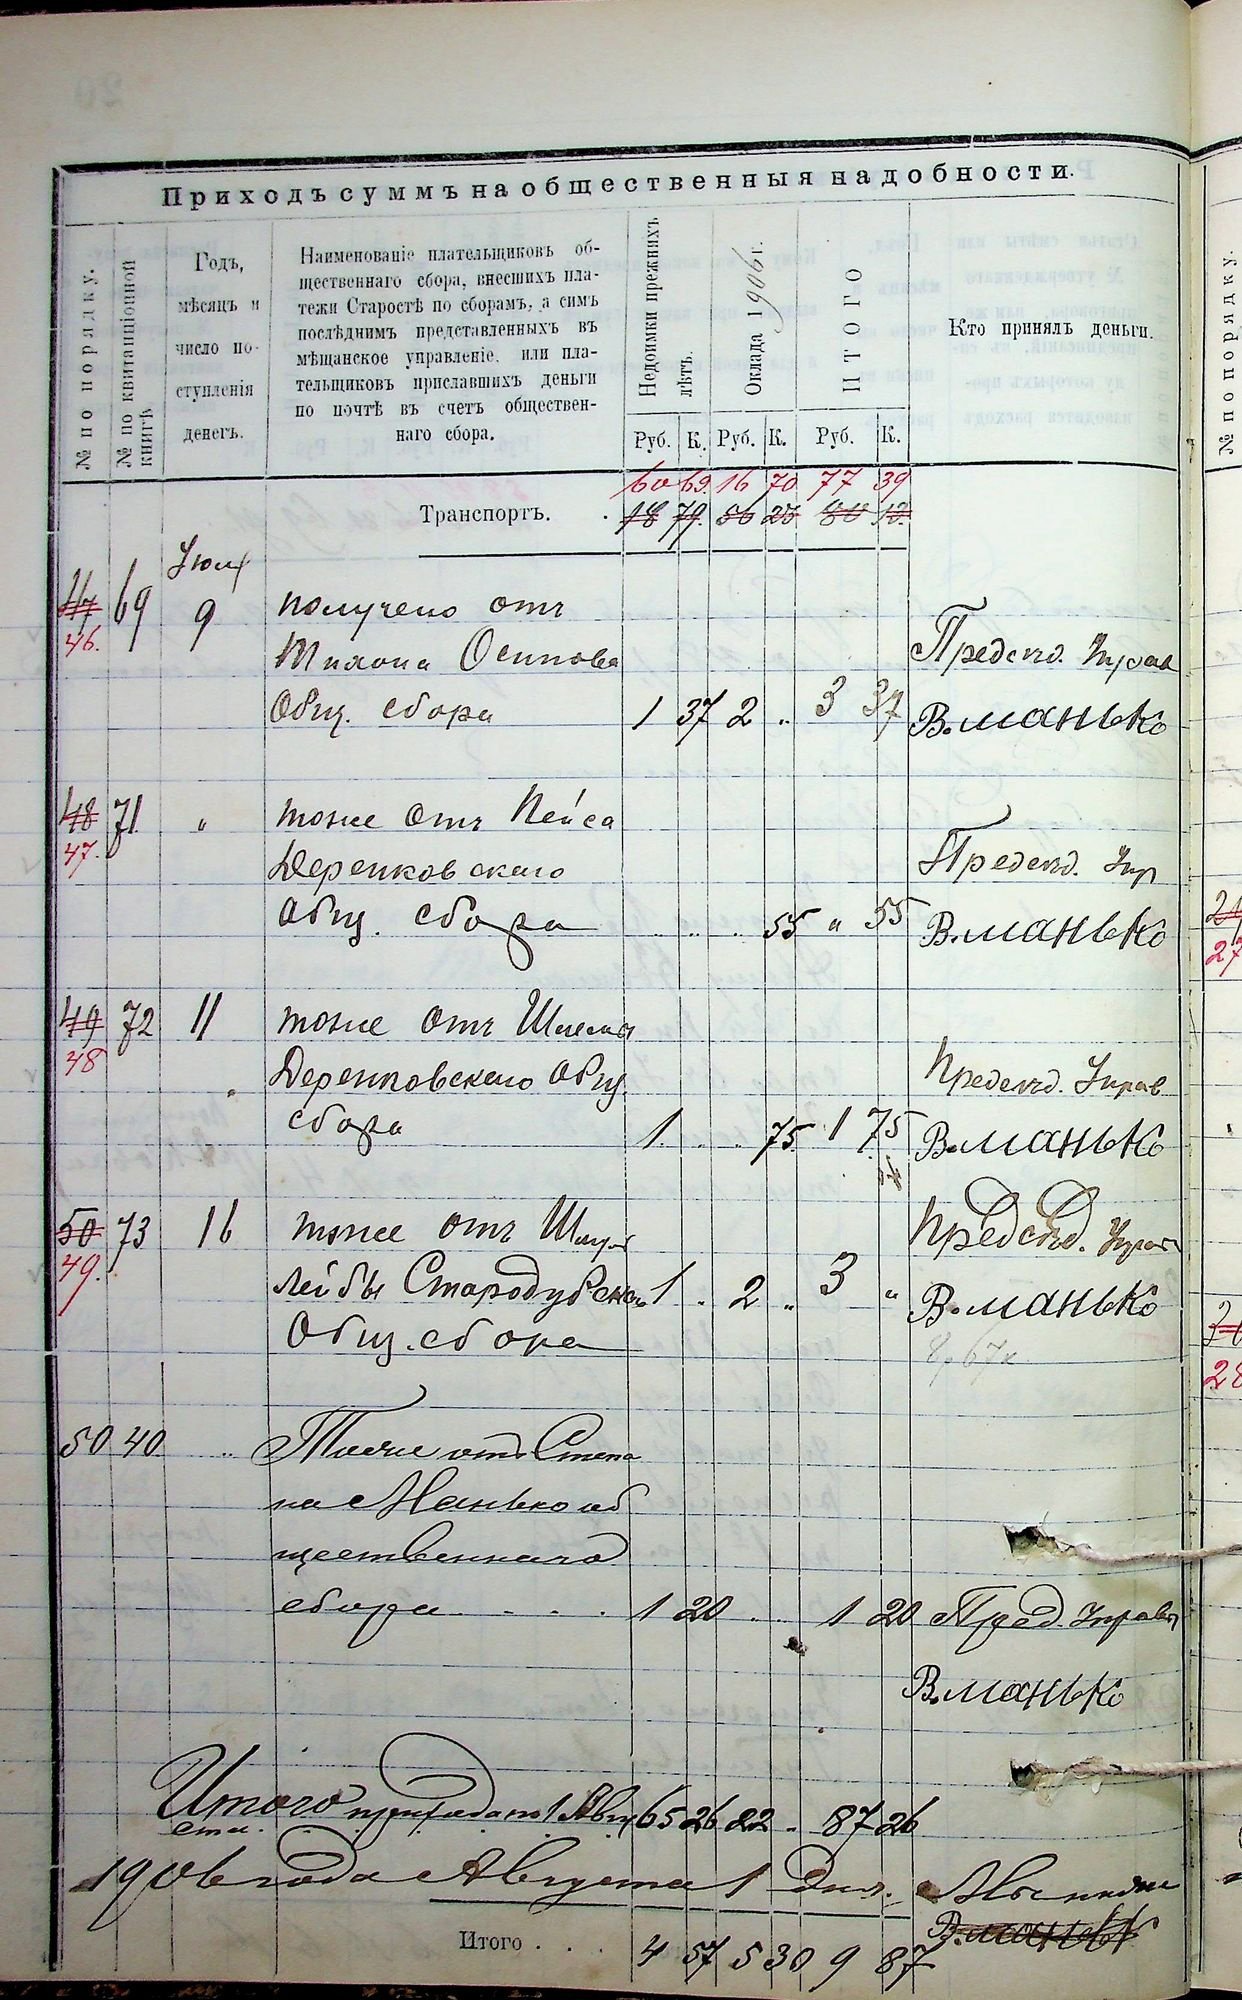 Приходъ суммъ на общественныя надобности.
№ по порядку.
№ по квитанціонной книгѣ
Годъ, мѣсяцъ и число поступленія денегъ.
Наименованіе плательщиковъ об-
щественнаго сбора, внесшихъ пла-
тежи Старостѣ по сборамъ, а симъ
послѣднимъ представленныхъ въ
мѣщанское управленіе, или пла-
тельщиковъ приславшихъ деньги
по почтѣ въ счетъ обществен-
наго сбора.
Недоимки прежнихъ лѣтъ.
Оклада 1906 г.
ИТОГО
Кто принялъ деньги.
Руб. К. Руб. К. Руб. К.
60 69 16 70 77 39
Транспортъ. 18 79 56 23 80 13
Іюля
47 69 9 получено отъ
46. Тихона Осипова Предсѣд. Управ
Общ. сбора 1 37 2 " 3 37 В. Манько
48 71 " тоже отъ Пейса
47. Деренковскаго Предсѣд. Упр
Общ. сбора 55 " 55 В. Манько
49 72 11 тоже отъ Шлемы
48 Деренковскаго Общ. Предсѣд. Управ
сбора 1 75 1 75 В. Манько
50 73 16 тоже отъ Предсѣд. Управ
49. Лейбы Стародубска 1 " 2 " 3 " В. Манько
Общ. сбора
50 40 " Тоже отъ Степа
на Манько об
щественнаго
сбора 1 20 1 20 Пред. Управы
В. Манько
Итого прихода по 1 Авгу 65 26 22 " 87 26
ста
1906 года Августа 1 дня.
В. Манько
Итого 4 57 5 30 9 87
№ по порядку.
27